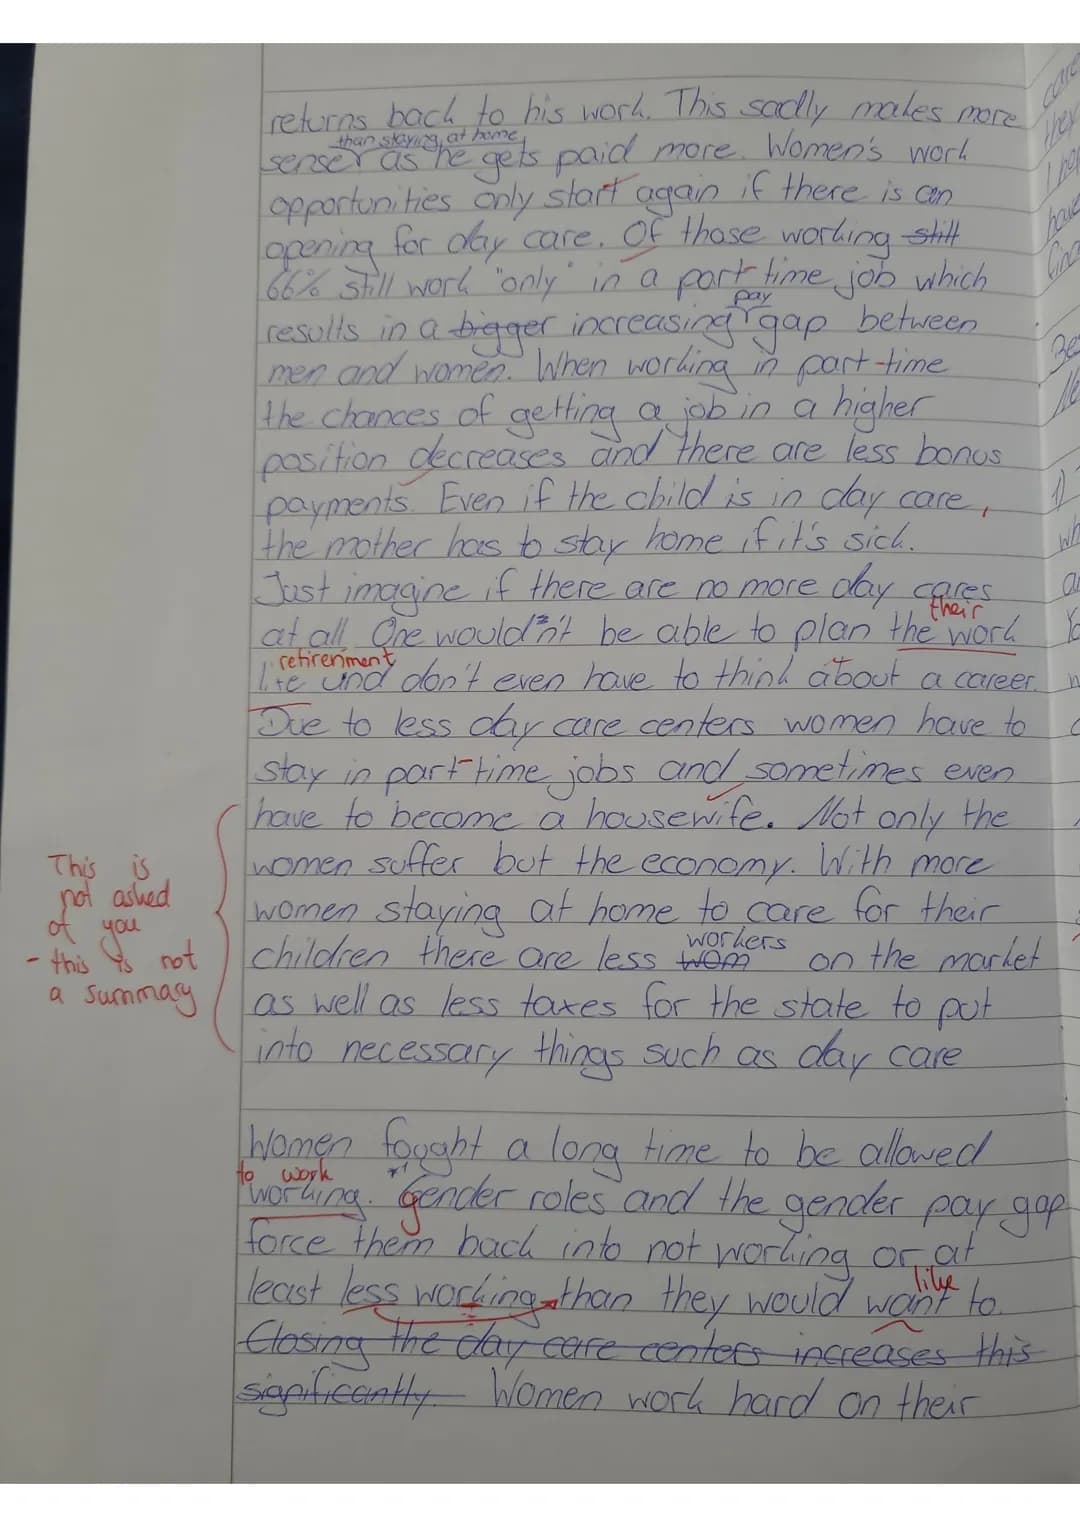 returns back to his work. This sadly makes more
than staying at home
sense as he gets paid more. Women's work
opportunities only start again if there is an
opening for day care. Of those working still
66% still work "only" in a part-time job which
pay
results in a bigger increasing gap between
men and women. When working in part-time
the chances of getting a job in a higher
position decreases and there are less bonus
payments. Even if the child is in day care,
the mother has to stay home if it's sick.
Just imagine if there are no more day cares
their
at all. One wouldn't be able to plan the work
retirenment
life und don't even have to think about a career.
Due to less day care centers women have to
stay in part-time jobs and sometimes even
have to become a housewife. Not only the
women suffer but the economy. With more
women staying at home to care for their
workers
children there are less wom on the market
as well as less taxes for the state to put
into necessary things such as day care
This is
not asked
of you
- this is not
a summary
Women fought a long time to be allowed
to work
working. Gender roles and the gender pay gap
force them back into not working or at
like
least less working than they would want to.
Closing the day care centers increases this
significantly. Women work hard on their